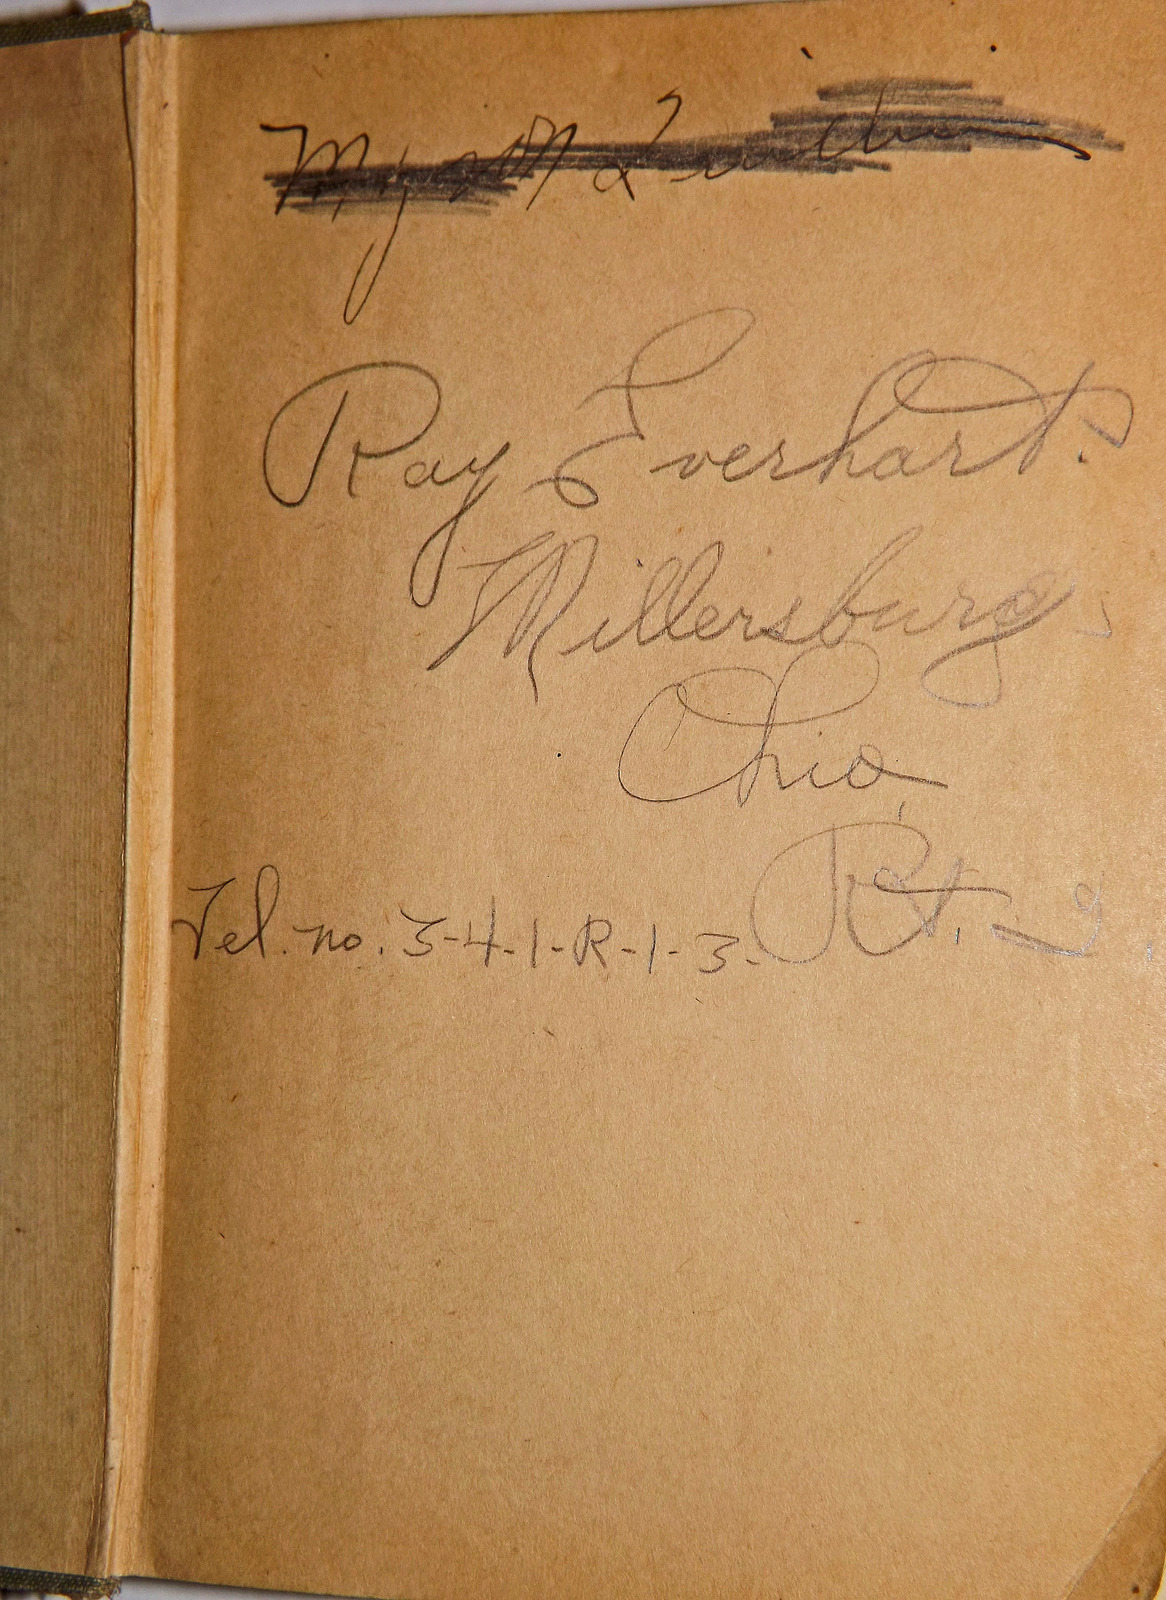 Ray Everhart.
Millersburg,
Ohio,
Tel. no. 3-4-1-R-1-3. Rt.